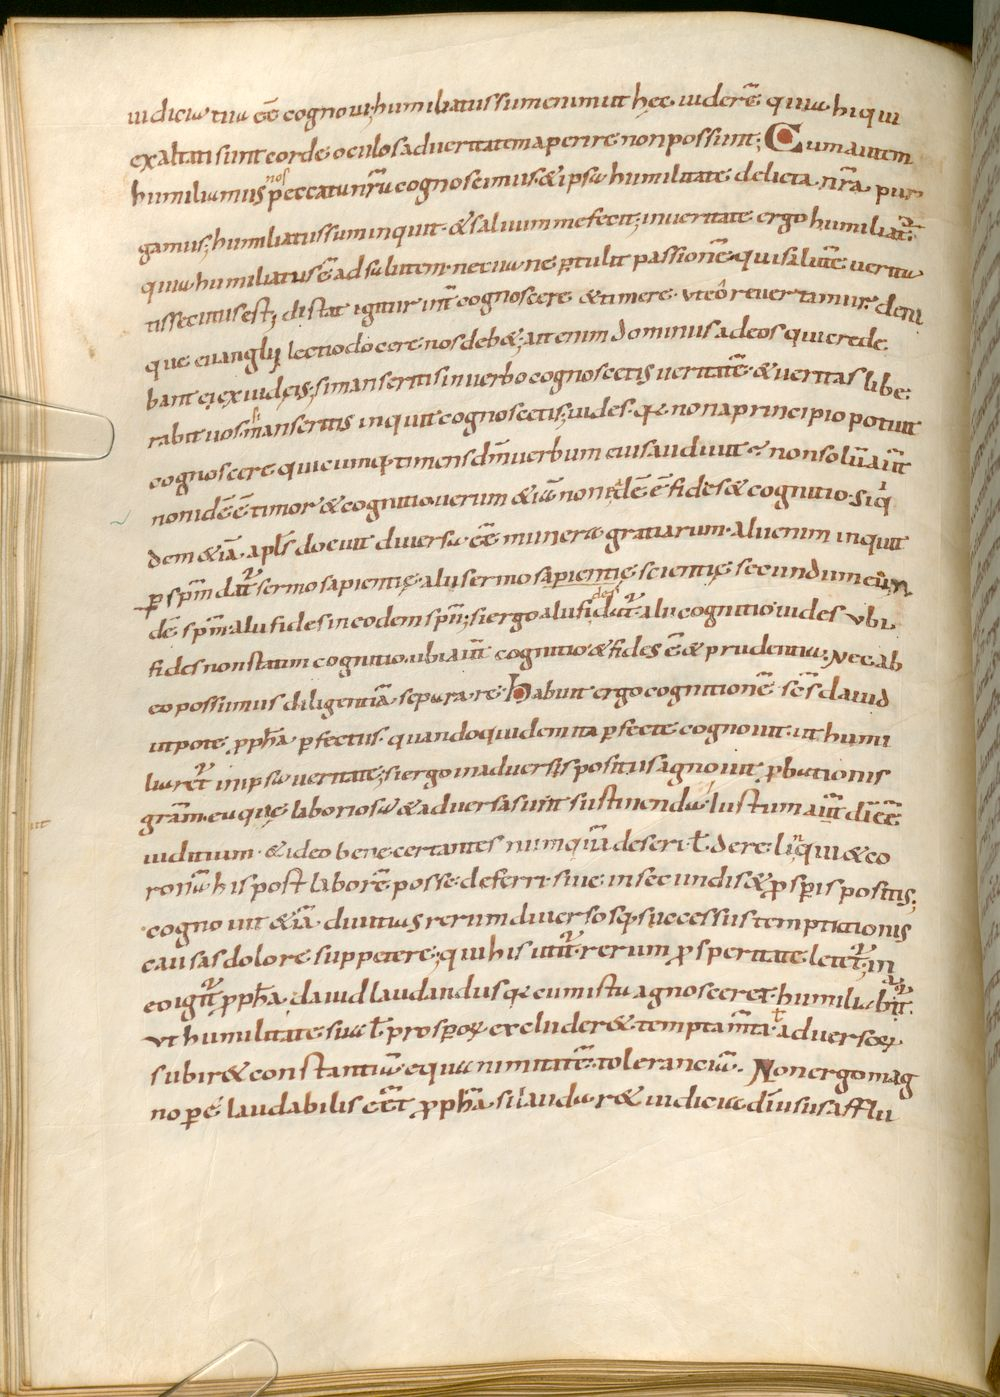 iudicia tua eē cognoui; humiliatus sum enim ut hęc uiderē quia hi qui
exaltati sunt corde oculos ad ueritatem aperire non possunt; Cum autem
humiliamus nos peccata nr̄a cognoscimus. & ipsa humilitate delicta nr̄a pur
gamus; humiliatus sum inquit. & saluum me fecit; in ueritate ergo humiliat᷑.
quia humiliatus ē ad salutem. nec iane ꝑtulit passionē. qui salutē uerita
tis secutus est; distat igitur int̄ cognoscere & timere. ut eô reuertamur. deni
que euanglii lectio docere nos deb&; ait enim dominus ad eos qui crede
bant ei ex iudeis; si manseritis in uerbo cognoscetis ueritatē. & ueritas libe
rabit uos. si manseritis inquit cognoscetis; uides. qꝛ non a principio potuit
cognoscere quicumq; timens dn̄i uerbum eius audiuit. & non solū aūt
non idē ē timor & cognitio. uerum & iā non idē ē fides & cognitio. siqi
dem & iā apls̄ docuit diuersa eē munera gratiarum. alii enim inquit
ꝑ spm̄ dat᷑ sermo sapientię. alii sermo sapientię scientię secundum eūn
dē spm̄. alii fides in eodem spū; si ergo alii fides dat᷑ alii cognitio. uides ubi
fides non statim cognitio. ubi aūt cognitio & fides ē & prudentia. Nec ab
eo possumus diligentiā separare. Habuit ergo cognitionē scs̄ dauid
utpote ꝓph̄a ꝑfectus. quandoquidem ita ꝑfecte cognouit. ut humi
liaret᷑ in ipsa ueritate; si ergo in aduersis positus agnouit ꝓbationis
gr̄am. ea quę laboriosa & aduersa sunt sustinenda; Iustum aūt dī eē
iuditium. & ideo bene certantes numquā deseri ł dere linqui & co
ronā his post laborē posse deferri. siue in secundis & ꝓsꝑis positis;
cognouit & iā diuitias rerum diuersosq; successus temptationis
causas dolore suppetere; qui his utit᷑. rerum ꝓsperitate letet᷑; in
eo igit᷑ ꝓph̄a dauid laudandus qꝛ cum ista agnosceret. humiliabat᷑.
ut humilitate sua ł prosꝑoꝝ excluder& temptam̄ta. ł aduersoꝝ
subir& constantiā. equanimitatē. toleranciā. Non ergo mag
no ꝑe laudabilis eēt ꝓph̄a si laudar& iudicia dī suis afflu